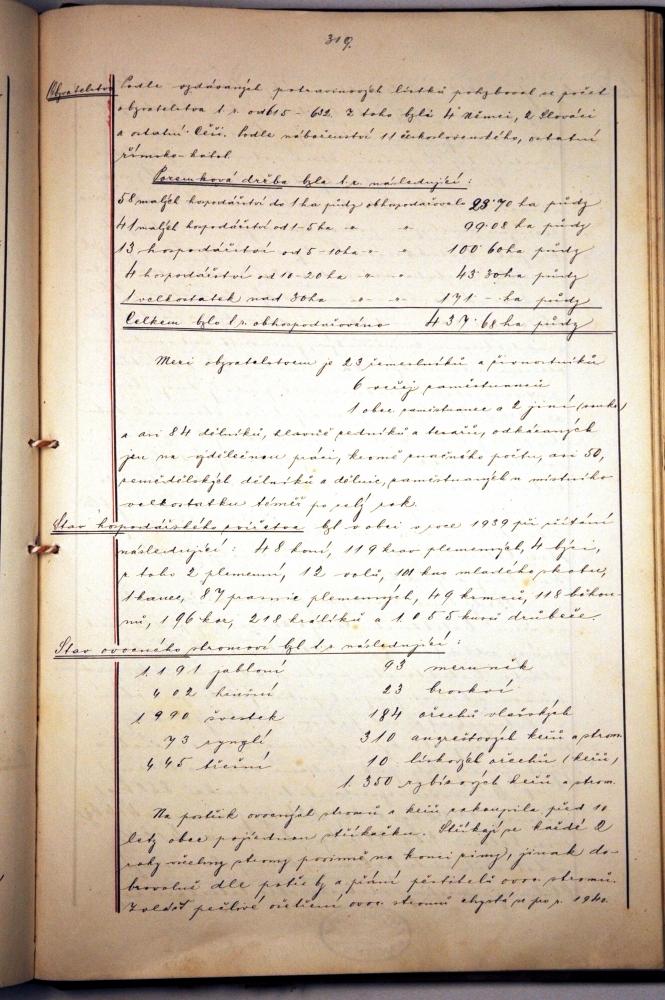 319.
Obyvatelstvo Podle vydávaných potravinových lístků pohyboval se počet
obyvatelstva t. r. od 615 - 632. Z toho byli 4 Němci, 2 Slováci
a ostatní Češi. Podle náboženství 11 československého, ostatní
římsko-katol.
Pozemková držba byla t. r. následující:
58 malých hospodářství do 1 ha půdy obhospodařovalo 23·70 ha půdy
41 malých hospodářství od 1-5 ha -"- -"- 99·08 ha půdy
13 hospodářství od 5-10 ha -"- -"- 100·60 ha půdy
4 hospodářství od 10-20 ha -"- -"- 43·30 ha půdy
1 velkostatek nad 30 ha -"- -"- 171 - ha půdy
Celkem bylo t. r. obhospodařováno 437·68 ha půdy
Mezi obyvatelstvem je 23 řemeslníků a živnostníků
6 veřej. zaměstnanců
1 obec. zaměstnanec a 2 jiní
a asi 84 dělníků, hlavně zedníků a tesařů, odkázaných
jen na výdělečnou práci, kromě značného počtu, asi 50,
zemědělských dělníků a dělnic, zaměstnaných u místního
velkostatku téměř po celý rok.
Stav hospodářského zvířectva byl v obci v roce 1939 při sčítání
následující: 48 koní, 119 krav plemenných, 4 býci,
z toho 2 plemenní, 12 volů, 101 kus mladého skotu,
1 kanec, 87 prasnic plemenných, 49 krmců, 118 běhou-
nů, 196 koz, 218 králíků a 1.055 kusů drůbeže.
Stav ovocného stromoví byl t. r. následující:
1.191 jabloní 93 meruněk
402 hrušní 23 broskví
1.990 švestek 184 ořechů vlašských
73 rynglí 310 angreštových keřů a strom.
445 třešní 10 lískových ořechů (keřů)
1.350 rybízových keřů a strom.
Na postřik ovocných stromů a keřů zakoupila před 10
lety obec pojízdnou stříkačku. Stříkají se každé 2
roky všechny stromy povinně na konci zimy, jinak do-
brovolně dle potřeby a přání pěstitelů ovoc. stromů.
Zvlášť pečlivé ošetření ovoc. stromů chystá se pro r. 1940.